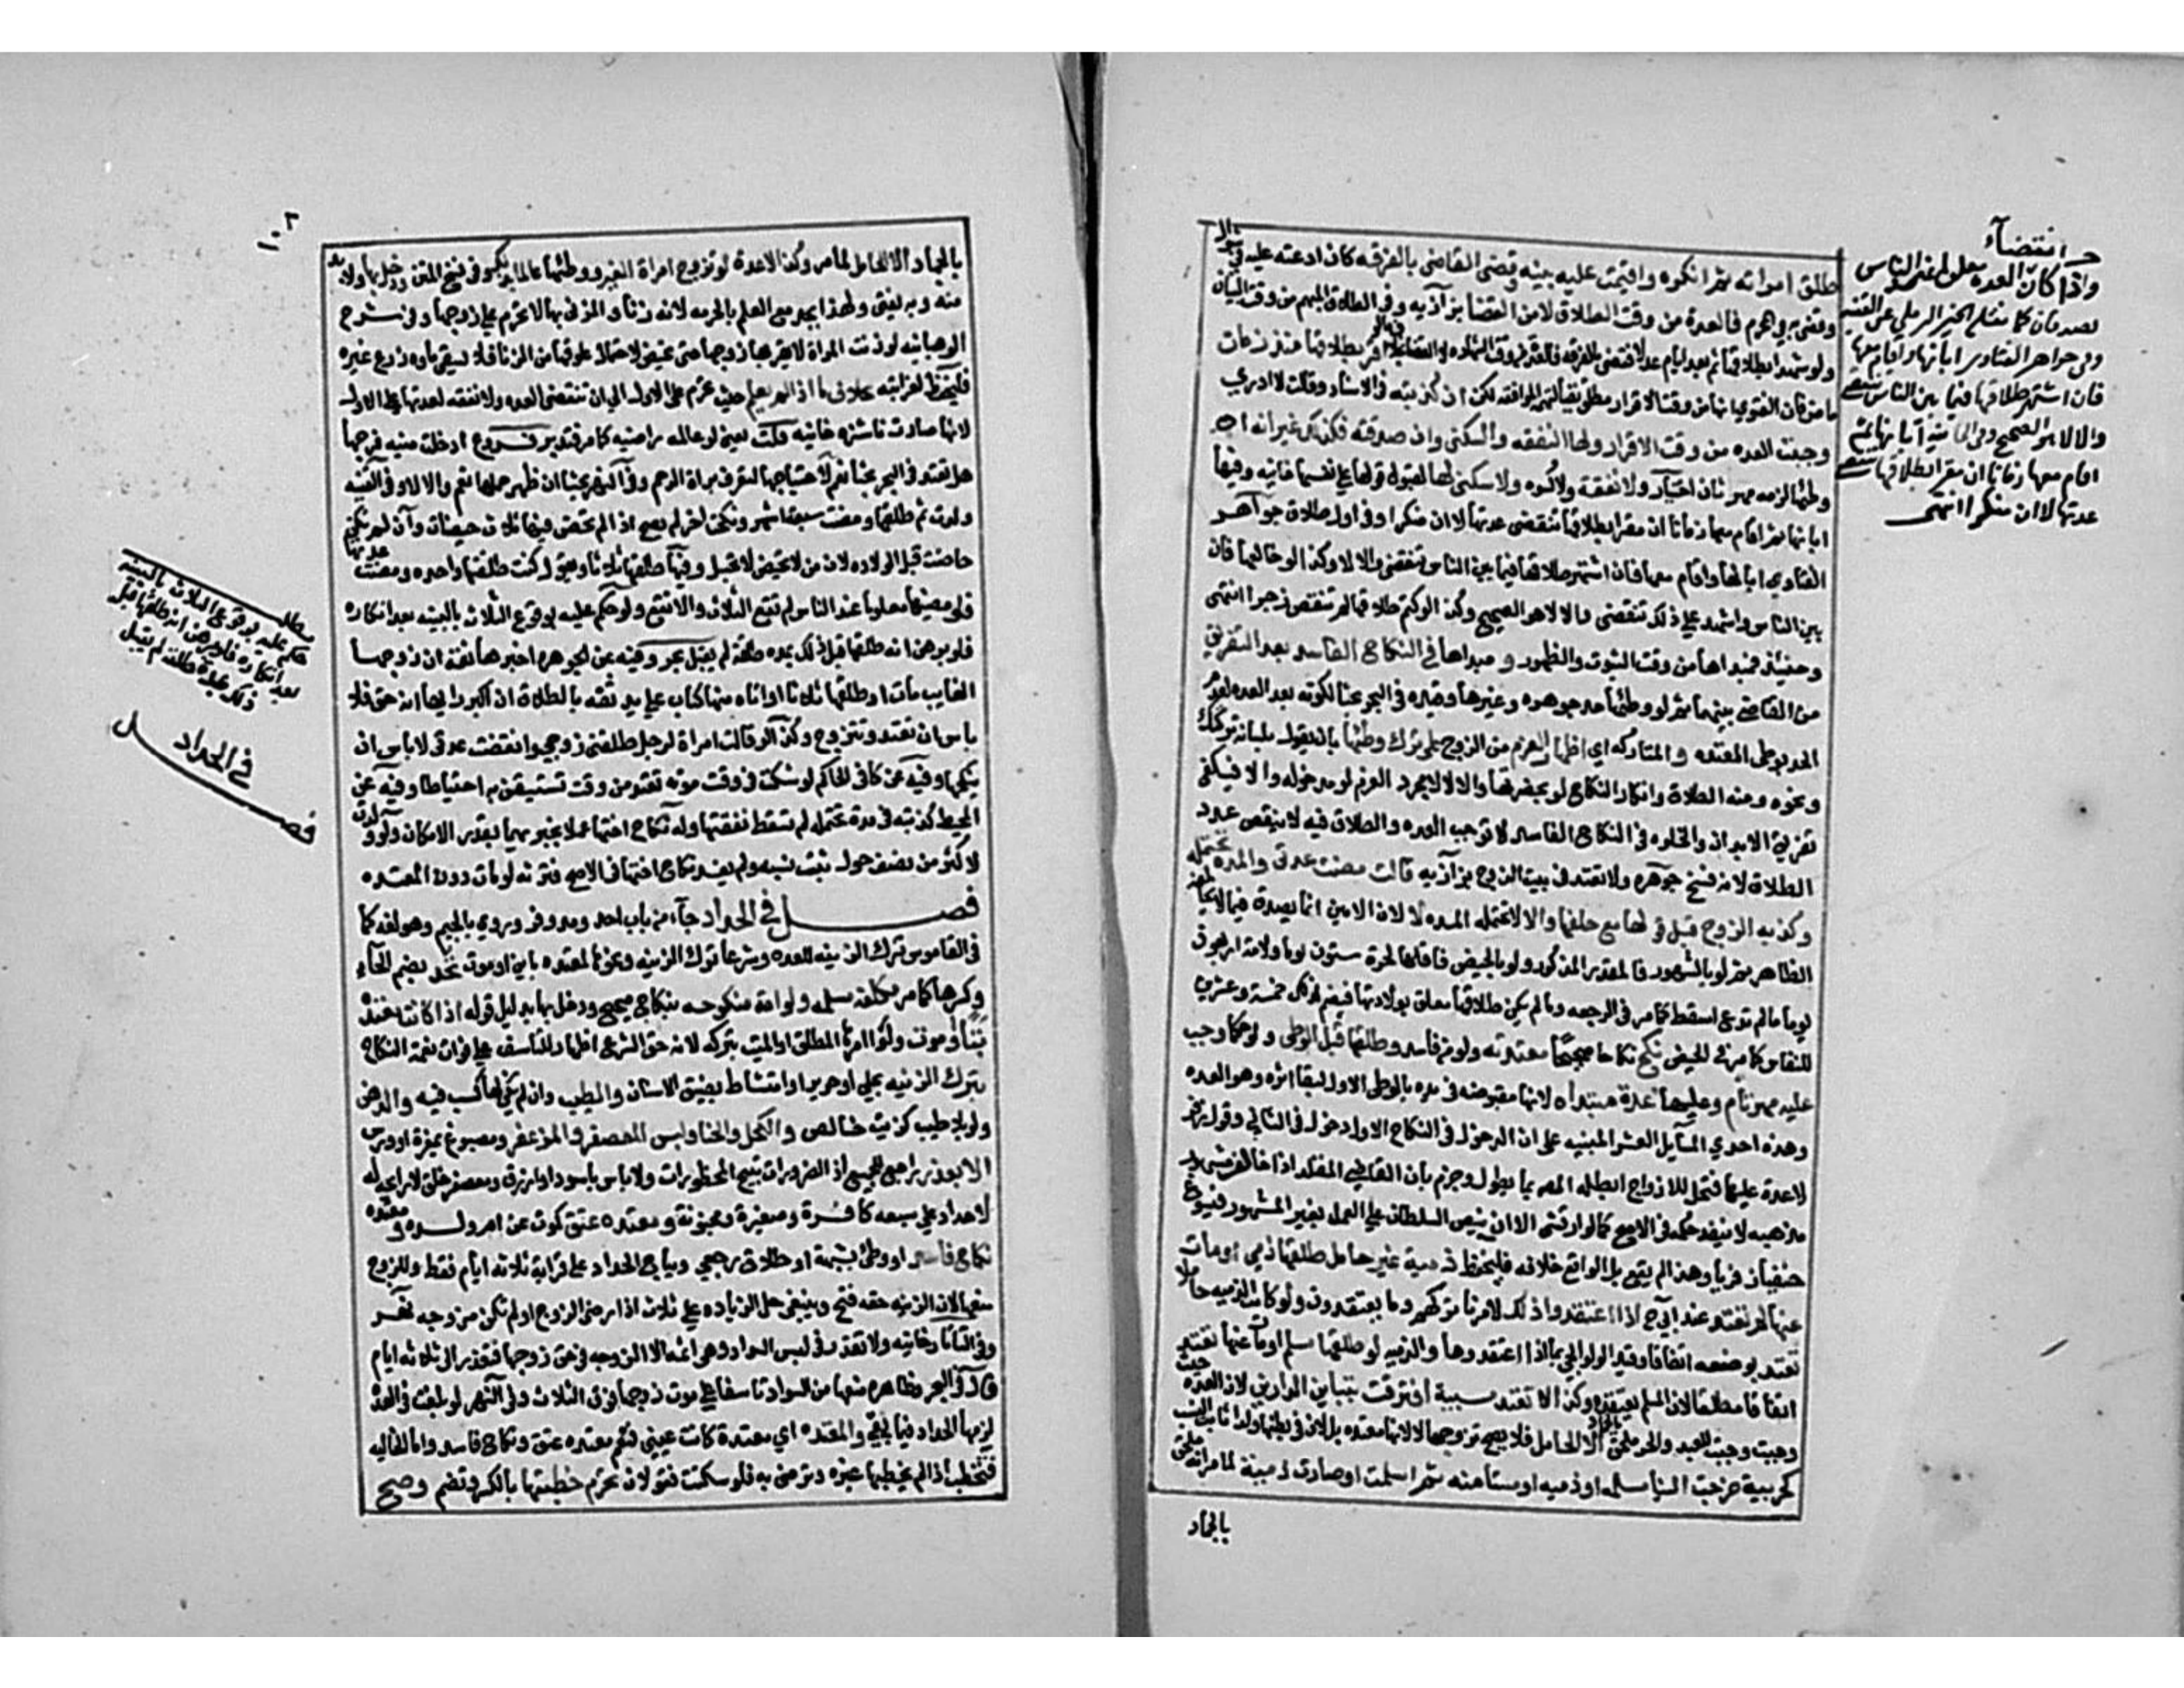 طلق امراته ثم انكره واقيمت عليه بينه وقضى القاضي بالفرقه كان ادعته عليه في شوال
وقضى به في المحرم فالعدة من وقت الطلاق لا من القضا بزازيه وفي الطلاق المبهم من وقت البيان
ولو شهدا بطلاقها ثم بعد ايام عدلا فقضى بالفرقه فالعدة من وقت الشهاده لا القضا اقر بطلاقها منذ زمان
ماض فان الفتوي انها من وقت الاقرار مطلقا نفيا لتهمة المواضعه لكن ان كذبته في الاسناد وقالت لا ادري
وجبت العده من وقت الاقرار ولها النفقه والسكنى وان صدقته فكذلك غير انه ان
وطئها لزمه مهر ثان اختيار ولا نفقة ولا كسوه ولا سكنى لها لقبول قولها علي نفسها خانيه وفيها
ابانها ثم اقام معها زمانا ان مقرا بطلاقها تنقضي عدتها لا ان منكرا وفي اول طلاق جواهر
الفتاوي ابانها واقام معها فان اشتهر طلاقها فيما بين الناس تنقضي والا لا وكذا لو خالعها فان
بين الناس واشهد علي ذلك تنقضي والا لا هو الصحيح وكذا لو كتم طلاقها لم تنقض زجرا انتهى
وحينئذ فمبداها من وقت الثبوت والظهور و مبداها في النكاح الفاسد بعد التفريق
من القاضي بينهما ثم لو وطئها حد جوهره وغيرها وقيده في البحر بحثا بكونه بعد العده لعدم
الحد بوطي المعتده و المتاركه اي اظهار العزم من الزوج علي ترك وطئها بان يقول بلسانه تركتك
ونحوه ومنه الطلاق وانكار النكاح لو بحضرتها والا لا لا بمجرد العزم لو مدخوله والا فيكفي
تفرق الابدان والخلوه في النكاح الفاسد لا توجب العده والطلاق فيه لا ينقص عدد
الطلاق لانه فسخ جوهره ولا تعتد في بيت الزوج بزازيه قالت مضت عدتي والمدة تحتمله
وكذبه الزوج قبل قولها مع حلفها والا لا تحتمله المده لا لان الامين انما يصدق فيما لا يخالفه
الظاهر ثم لو بالشهور فالمقدر المذكور ولو بالحيض فاقلها لحرة ستون يوما ولامة اربعون
يوما ما لم تدع السقط كما مر في الرجعه وما لم يكن طلاقها معلق بولادتها فيضم لذلك خمسة وعشرين
للنفاس كما مر في الحيض نكح نكاحا صحيحا معتدته ولو من فاسد وطلقها قبل الوطي ولو حكما وجب
عليه مهر تام وعليها عدة مبتداه لانها مقبوضه في يده بالوطي الاول لبقا اثره وهو العده
وهذه احدي المسايل العشر المبنيه علي ان الدخول في النكاح الاول دخول في الثاني وقول زفر
لا عدة عليها فتحل للازواج ابطله المص بما يطول وجزم بان القاضي المقلد اذا خالف مشهور
مذهبه لا ينفذ حكمه في الاصح كما لو ارتشى الا ان ينص السلطان علي العمل بغير المشهور فيسوغ
حنفيا زفريا وهذا لم يقع بل الواقع خلافه فليحفظ ذمية غير حامل طلقها ذمي او مات
عنها لم تعتد عند ابي ح اذا اعتقدوا ذلك لامرنا بتركهم وما يعتقدون ولو كانت الذميه حاملا
تعتد بوضعه اتفاقا وقيد الولوالجي بما اذا اعتقدوها والذميه لو طلقها مسلم او مات عنها تعتد
اتفاقا مطلقا لان المسلم يعتقده وكذا لا تعتد مسبية افترقت بتباين الدارين لان العدة حيث
وجبت وجبت للعبد والحربي ملحق بالجماد الا الحامل فلا يصح تزوجها لا لانها معتده بل لان في بطنها ولدا ثابت النسب
كحربية خرجت الينا مسلمه او ذميه او مستامنه ثم اسلمت او صارت ذمية لما مر انه ملحق
بالجماد
انقضاء
واذا كان العده معلوما عند الناس
تصدقان كما نقله الخير الرملي عن القنيه
وفي جواهر الفتاوي ابانها واقام معها
فان اشتهر طلاقها فيما بين الناس تنقضي
والا لا هو الصحيح وفي الخانية ابانها ثم
اقام معها زمانا ان مقرا بطلاقها تنقضي
عدتها لا ان منكرا انتهى
١٠٢
بالجماد الا الحامل لما مر وكذا لا عدة لو تزوج امراة الغير ووطئها عالما بذلك وفي نسخ المتن ودخل بها ولا بد
منه وبه يفتى ولهذا يحد مع العلم بالحرمه لانه زنا والمزني بها لا تحرم علي زوجها وفي شرح
الوهبانيه لو زنت المراة لا يقربها زوجها حتى تحيض لاحتمال علوقها من الزنا فلا يسقي ماوه زرع غيره
فليحفظ لغرابته بخلاف ما اذا لم يعلم حيث تحرم على الاول الي ان تنقضي العده ولا نفقه لعدتها علي الاول
لانها صارت ناشزه خانيه قلت يعني لو عالمه راضيه كما مر فتدبر فروع ادخلت منيه في فرجها
هل تعتد في البحر بحثا نعم لاحتياجها لتعرف براة الرحم وفي النهر بحثا ان ظهر حملها نعم والا لا وفي القنيه
ولدت ثم طلقها ومضت سبعة اشهر ونكحت اخر لم يصح اذا لم تحض فيها ثلاث حيضات وان لم تكن
حاضت قبل الولاده لان من لا تحيض لا تحبل وفيها طلقها ثلاثا ويقول كنت طلقتها واحده ومضت عدتها
فلو مضيها معلوما عند الناس لم تقع الثلاث والا تقع ولو حكم عليه بوقوع الثلاث بالبينه بعد انكاره
فلو برهن انه طلقها قبل ذلك بمده طلقة لم يقبل بحر وفيه عن الجوهره اخبرها ثقة ان زوجها
الغايب مات او طلقها ثلاثا او اتاه منها كتاب علي يد ثقه بالطلاق ان اكبر رايها انه حق فلا
باس ان تعتد وتتزوج وكذا لو قالت امراة لرجل طلقني زوجي وانقضت عدتي لا باس ان
ينكحها وفيه عن كافي الحاكم لو شكت في وقت موته تعتد من وقت تستيقن به احتياطا وفيه عن
المحيط كذبته في مدة تحتمله لم تسقط نفقتها وله نكاح اختها عملا بخبريهما بقدر الامكان ولو ولدت
لاكثر من نصف حول ثبت نسبه ولم يفسد نكاح اختها في الاصح فترثه لو مات دون المعتده
فصل في الحداد جاء من باب احد ومد وفر وروي بالجيم وهو لغة كما
في القاموس ترك الزينه للعده وشرعا ترك الزينه ونحوها لمعتده باين او موت تحد بضم الحاء
وكسرها كما مر مكلفه مسلمه ولو امة منكوحه بنكاح صحيح ودخل بها بدليل قوله اذا كانت معتدة
بت او موت ولو امرها المطلق او الميت بتركه لانه حق الشرع اظهارا للتاسف علي فوات نعمة النكاح
بترك الزينه بحلي او حرير او امتشاط بضيق الاسنان والطيب وان لم يكن لها كسب فيه والدهن
ولو بلا طيب كزيت خالص والكحل والحنا ولبس المعصفر والمزعفر ومصبوغ بمغرة او ورس
الا بعذر راجع للجميع اذ الضرورات تبيح المحظورات ولا باس باسود وازرق ومعصفر خلق لا رايحه له
لا حداد علي سبعه كافرة وصغيرة ومجنونة ومعتده عتق كموت عن ام ولده ومعتده
نكاح فاسد او وطئ بشبهة او طلاق رجعي ويباح الحداد علي قرابة ثلاثة ايام فقط وللزوج
منعها لان الزينه حقه فتح وينبغي حل الزياده علي ثلاث اذا رضي الزوج او لم تكن مزوجه نهر
وفي التاتارخانيه ولا تعذر في لبس السواد وهي اثمه الا الزوجه في حق زوجها فتعذر الى ثلاثه ايام
قال في البحر وظاهره منعها من السواد تاسفا علي موت زوجها فوق الثلاث وفي النهر لو بلغت في العدة
لزمها الحداد فيما بقي والمعتده اي معتدة كانت عيني فتعم معتده عتق ونكاح فاسد واما الخاليه
فتخطب اذا لم يخطبها غيره وترضى به فلو سكتت فقولان تحرم خطبتها بالكسر وتضم وصح
مطلب
حكم عليه بوقوع الثلاث بالبينه
بعد انكاره فلو برهن انه طلقها قبل
ذلك بمدة طلقة لم يقبل
فصل
في الحداد